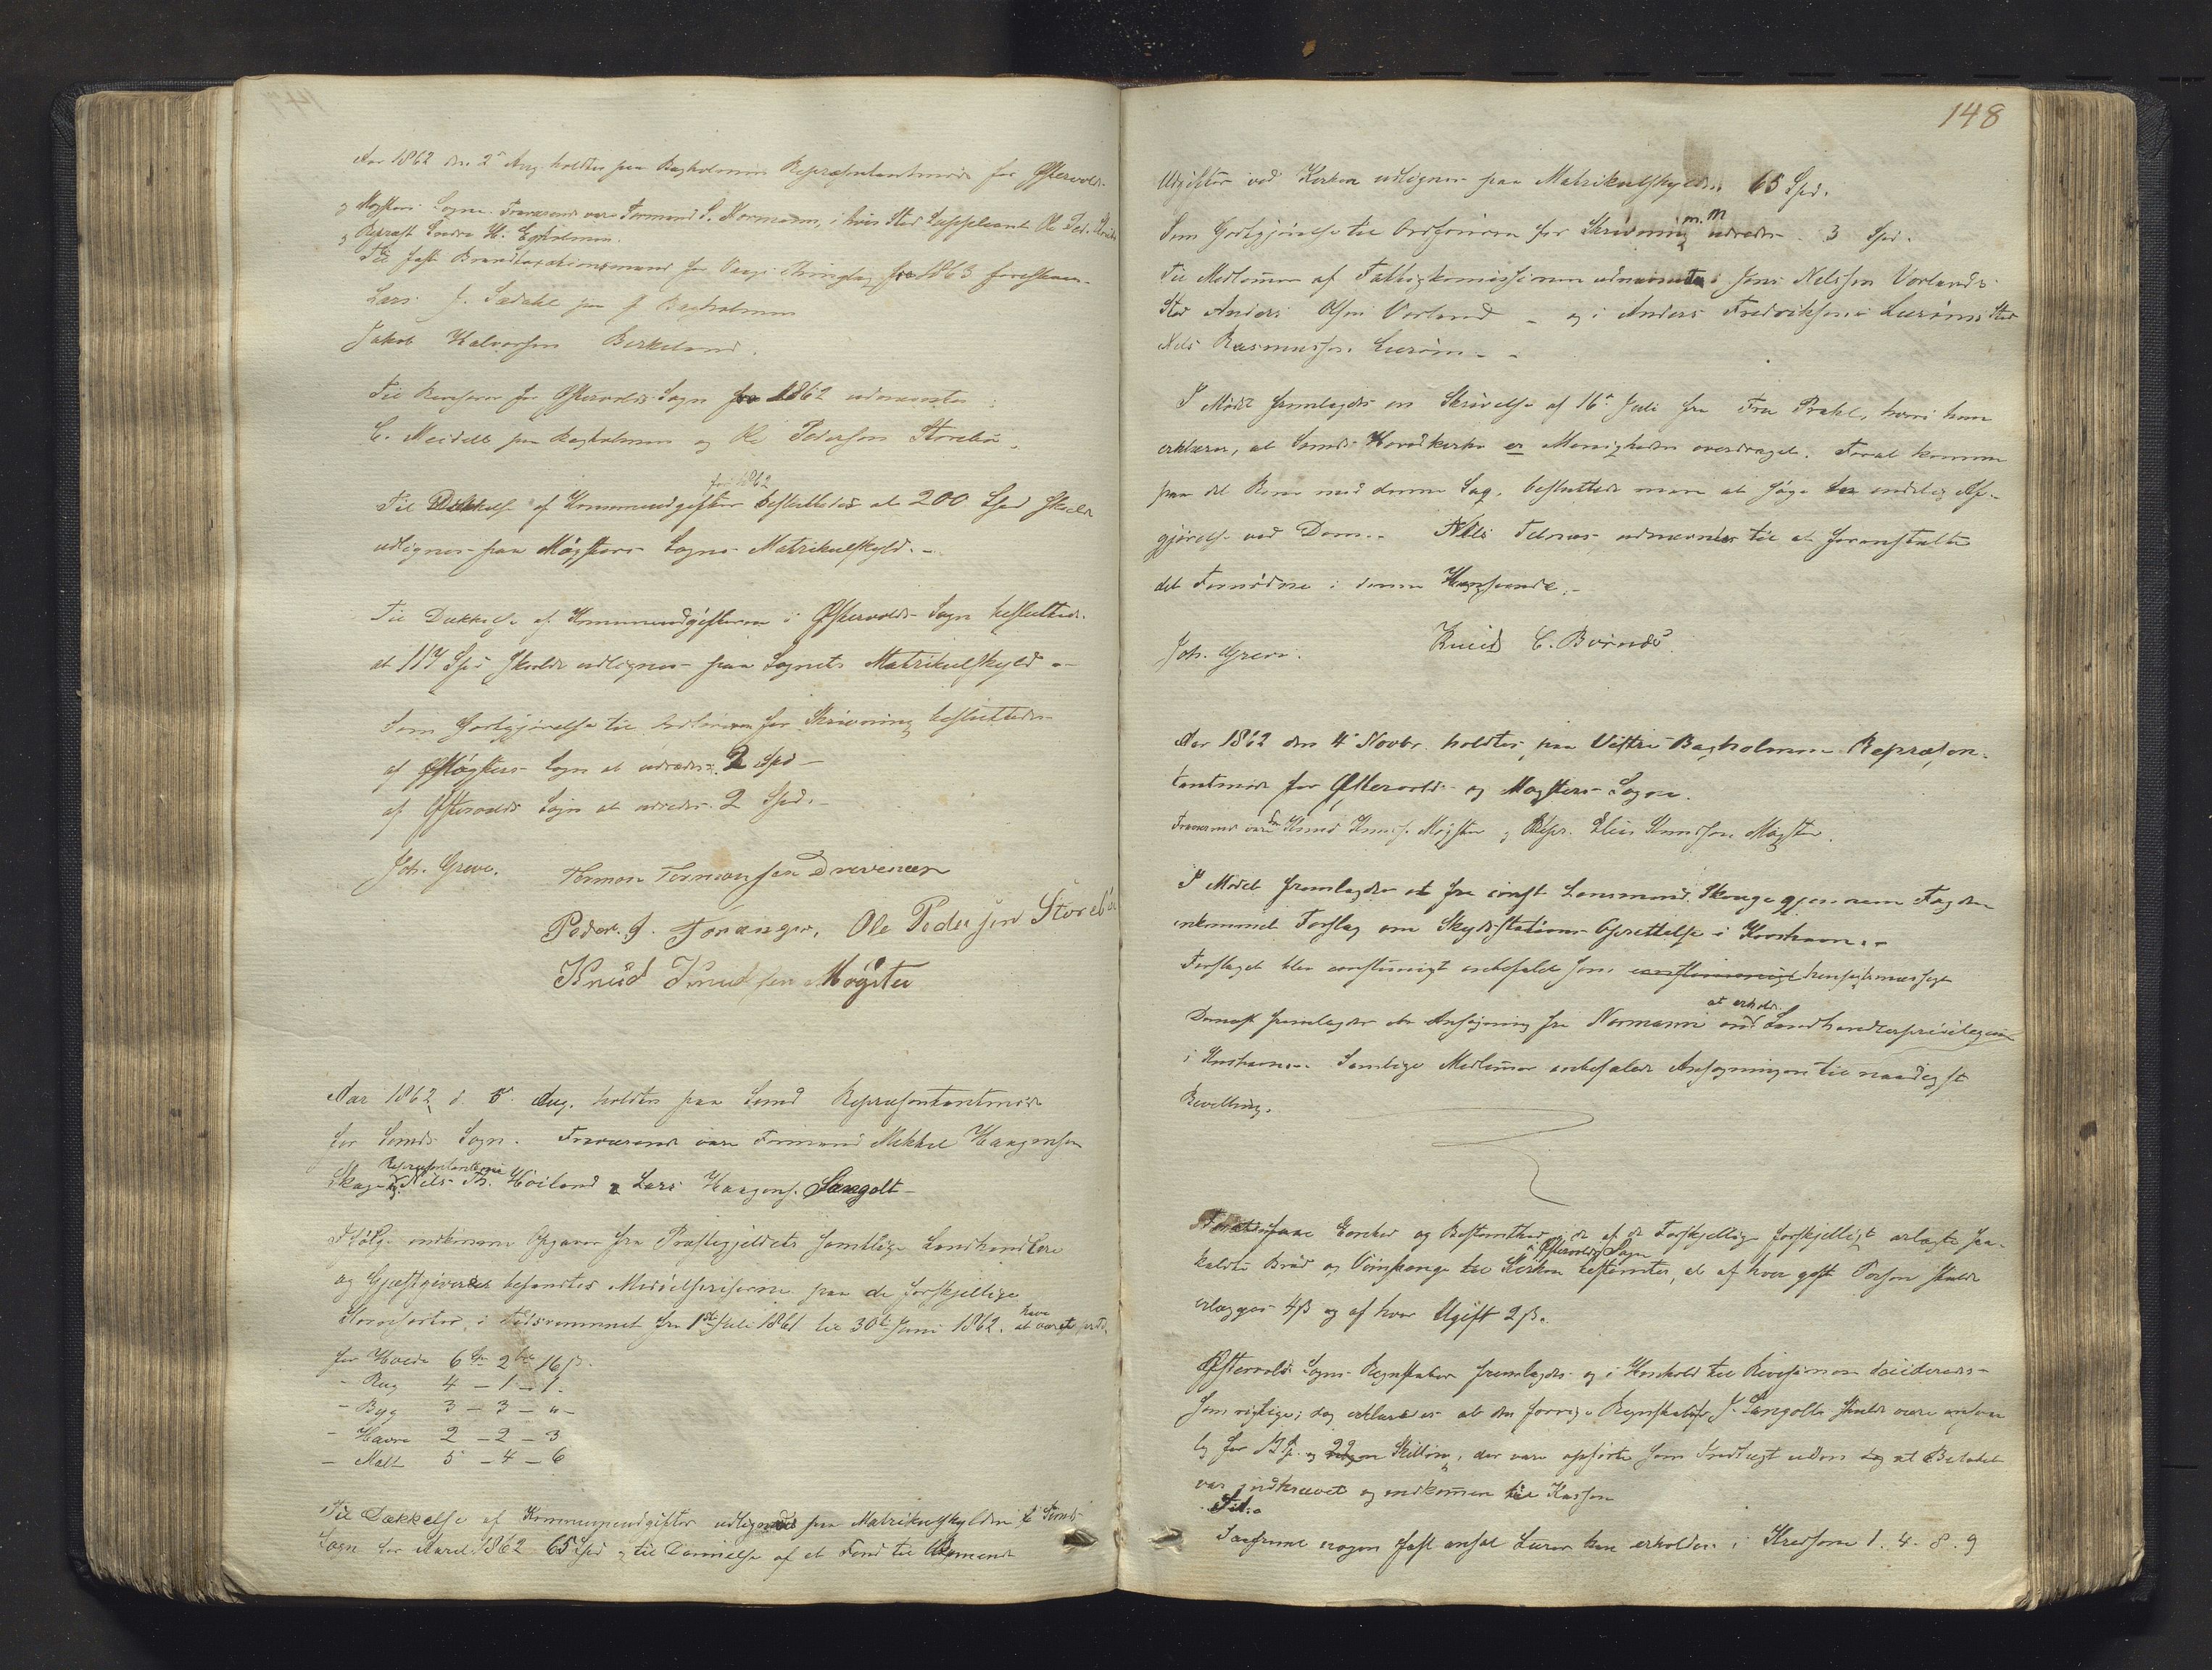 Aar 1862 den 2den Aug holdtes paa Bagholmen Repræsentantmøde for Østervolds
og Møgsters Sogne. Fraværende vare Formand S. Normann, i hvis Sted Suppleant Ole Ped. Storebø
og Repræst Sndre H. Egholmen.
Til fast Brandtaxationsmand for Vaags Thinglag for 1863 foreslaaes
Lars J. Sædahl paa Bagholmen
Jakob Halvorsen Birkeland.
Til Revisorer for Østervolds Sogn for 1862 udnævntes:
C. Meidell paa Bagholmen og Ole Pedersen Storebø.
for 1862
Til Dækkelse af Kommuneudgifter besluttedes at 200 Spd skulde
udlignes paa Møgsters Sogns Matrikulskyld. -
Til Dækkelse af Kommuneudgifterne i Østervolds Sogn besluttedes
at 117 Spd skulde udlignes paa Sognets Matrikulskyld -
Som Godtgjørelse til Ordføreren for Skrivning besluttedes
af Møgsters Sogn at udredes 2 Spd -
af Østervolds Sogn at udredes 2 Spd. -
Joh. Greve. Tormon Tormonsen Drivenæs
Peder J. Foranger, Ole Pedersen Storebø
Knud Knudsen Møgster
Aar 1862 d. 5 Aug. holdtes paa Sund Repræsentantmøde
for Sunds Sogn. Fraværende vare Formand Mikkel Haagensen
Repræsentanterne
Skage og Nils Th. Høiland & Lars Haagens. Sangolt -
Ifølge indkomne Opgaver fra Præstegjeldets samtlige Landhandlere
og Gjæstgivere befandtes Middelpriserne paa de forskjellige
Kornsorter, i Tidsrummet fra 1ste Juli 1861 til 30te Juni 1862, at have været
for Hvede 6 2 16 ß.
- Rug 4 - 1 - 1 -
- Byg 3 - 3 - " -
- Havre 2 - 2 - 3
- Malt 5 - 4 - 6
Til Dækkelse af Kommuneudgifter udlignedes paa Matrikulskylden i Sunds
Sogn for Aaret 1862 65 Spd og til Dannelse af et Fond til
148
Udgifter ved Kirken udlignes paa Matrikulskylden 65 Spd.
m. M
Som Godtgjørelse til Ordføreren for Skrivning udredes 3 Spd.
Til Medlemmer af Fattigkommissionen udnævntes i Jens Nelssen Vorlands
Sted Anders Olsen Vorland - og i Anders Fredriksen Lerøens Sted
Nels Rasmussen Lerøen - -
I Mødet fremlagdes en Skrivelse af 16de Juli fra Fru Prahl, hvori hun
erklærer, at Sunds Hovedkirke er Menigheden overdraget. For at komme
paa det Rene med denne Sag, besluttede man at søge den endelig Af-
gjørelse ved Dom. - Nils Telnæs udnævntes til at foranstalte
det Fornødne i denne Henseende. -
Joh. Greve. Knud C. Børnæs
Aar 1862 den 4 Novbr. holdtes paa Vestre Bagholmen Repræsen-
tantmøde for Østervolds og Møgsters Sogne.
Fraværende vare Knud Knuds. Møgster og Repr. Elias Knudsen Møgster.
I Mødet fremlagdes et fra const. Lensmand Skauge gjennem Fogden
indkommet Forslag om Skydsstations Oprettelse i
Forslaget blev eenstemmigt anbefalet som hensigtsmæssigt
at erholde
Dernæst fremlagdes en Ansøgning fra Normann om Landhandlerprivilegium
i Samtlige Medlemmer anbefalede Ansøgningen til naadigst
Bevilling.
og Bestemthed i de af de Forskjellige forskjelligt erlagte saa-
i Østervolds Sogn
kaldte Brød og Viinpenge til Kirken bestemtes, at af hver gift Person skulde
erlægges 4 ß og af hver Ugift 2 ß.
Østervolds Sogns Regnskaber fremlagdes og i Henhold til Revisionen decideredes
som rigtige; dog erklæredes at den forrige Regnskabsf. J. Sangolt skulde være ansvar-
lig for og 22 Skilling, der vare opførte som Indtægt uden at Beløbet
var indkrævet og indkommen til Kassen
Saafremt nogen fast ansat Lærer kan erholdes i Kredsene 1. 4. 8. 9